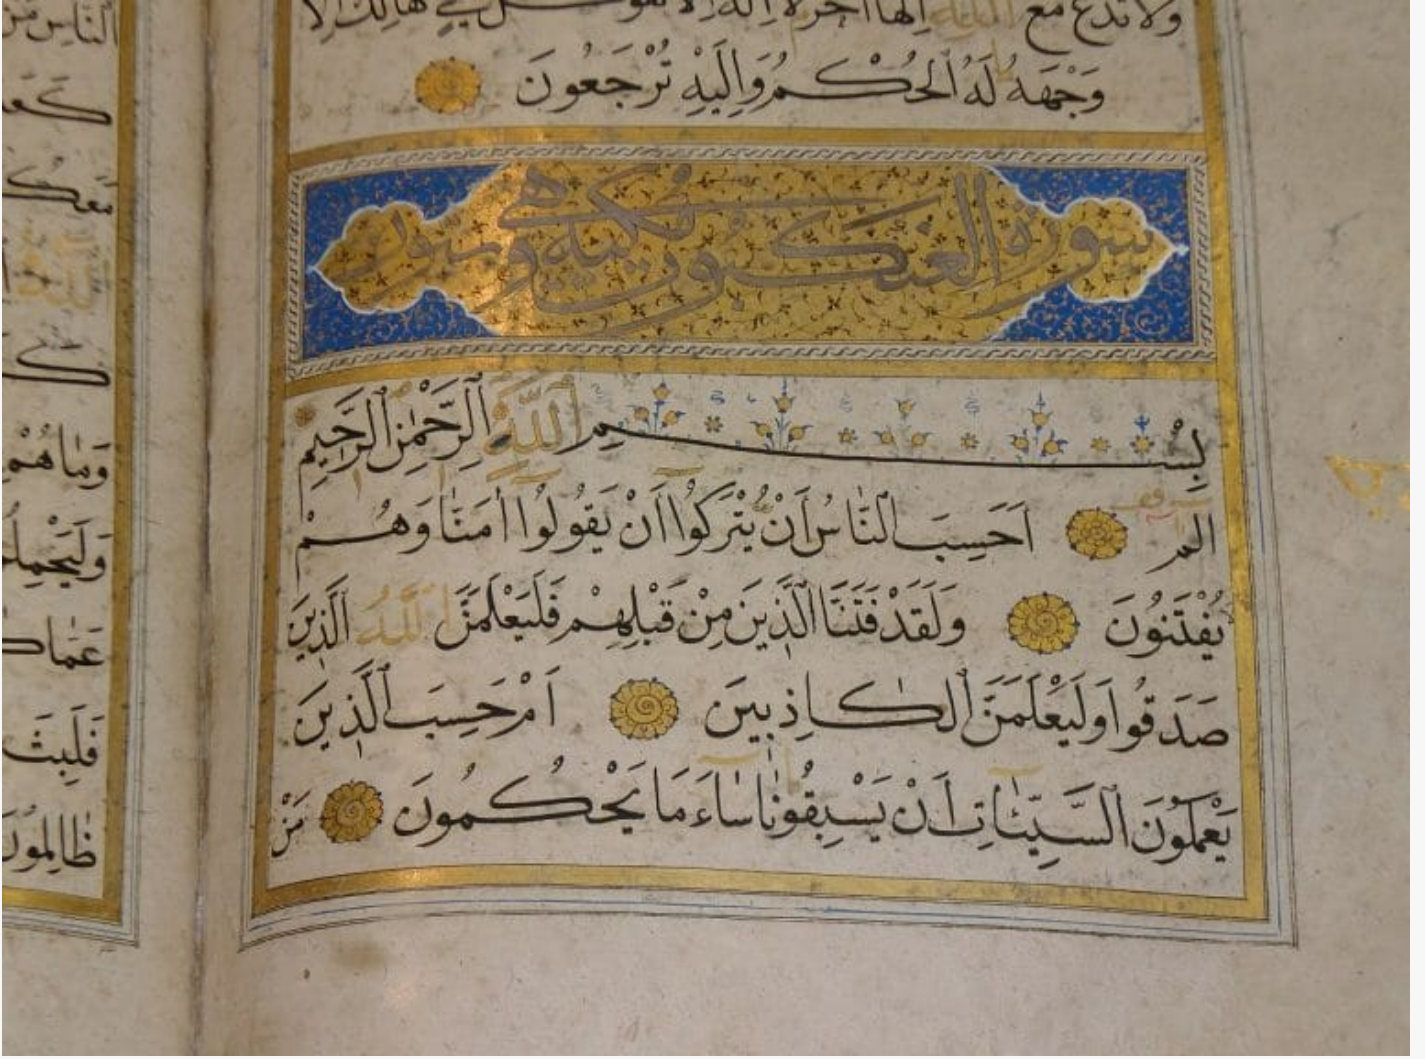 ولا تدع مع الله الها اخر لا اله الا هو كل شيء هالك الا
وَجْهَهُ لَهُ ٱلْحُكْمُ وَاِلَيْهِ تُرْجَعُونَ
سورة العنكبوت مكية وهي
بِسْمِ اللهِ ٱلرَّحْمٰنِ ٱلرَّحِيمِ
الم اَحَسِبَ ٱلنَّاسُ اَنْ يُتْرَكُوا اَنْ يَقُولُوا اٰمَنَّا وَهُمْ
يُفْتَنُونَ وَلَقَدْ فَتَنَّا ٱلَّذِينَ مِنْ قَبْلِهِمْ فَلَيَعْلَمَنَّ اللّٰهُ ٱلَّذِينَ
صَدَقُوا وَلَيَعْلَمَنَّ ٱلْكَاذِبِينَ اَمْ حَسِبَ ٱلَّذِينَ
يَعْمَلُونَ ٱلسَّيِّـَٔاتِ اَنْ يَسْبِقُونَا سَاءَ مَا يَحْكُمُونَ مَنْ
الناس
وَمَا هُمْ
فَلَبِثَ
ظَالِمُونَ